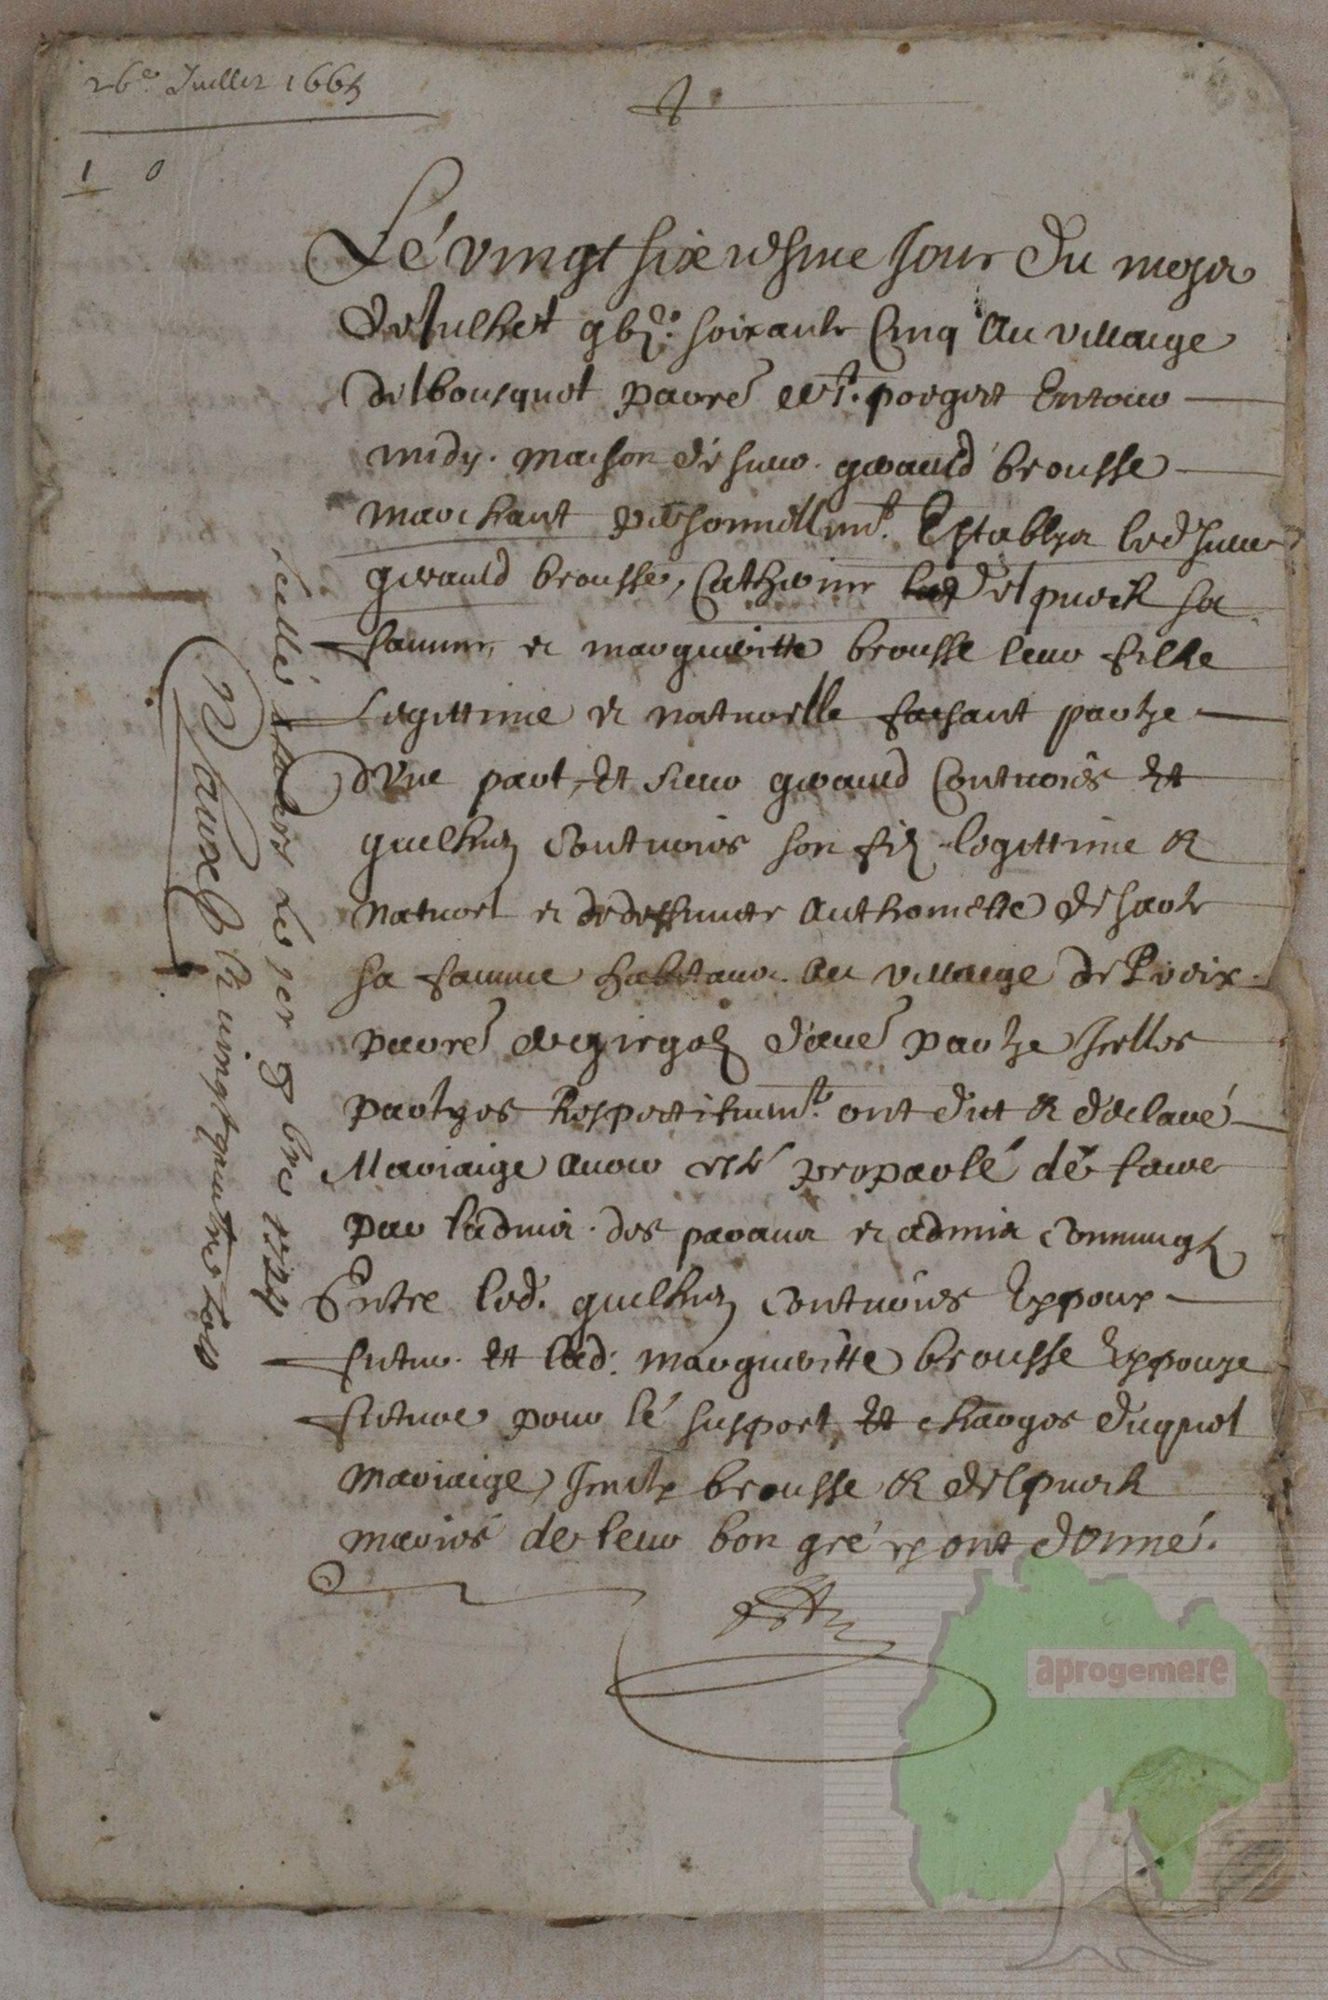 26e Juillet 1665
1 0
Lé vingt sixiesme Jour du moys
de Julhet gbje. soixante Cinq Au villaige
delbousquet parre polgert Environ
midy. maison de sieur. gerauld brousse
marchant personnellemt. Establys led sieur
gerauld brousse, Catherine delpuech sa
famme et margueritte brousse leur filhe
Legittime et naturelle faisant partye
d'Une part, et sieur gerauld Contrerès et
guelhen Contreres son filz legittime et
naturel et de deffuncte Anthoinette desarte
sa famme habitans. Au villaige de
parre. de girgolz d'autre partye Jcelles
partyes Respectivemt. ont dict et déclaré
Mariaige Avoir esté proparlé dé faire
par l'advis. des parans et admis
Entre led. guelhen contreres Espoux
futur. et lad. margueritte brousse Espouze
future pour lé suport, et charges duquel
mariaige, brousse et delpuech
mariés de leur bon gré y ont donné.
vingt quatre sols